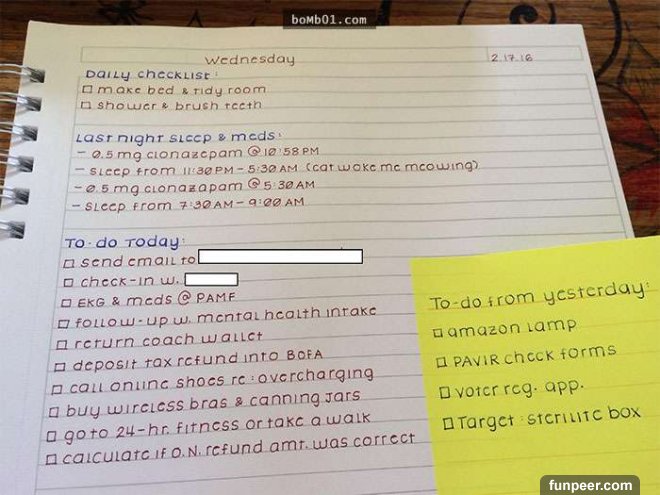 boMb01.com
Wednesday
2.17.16
Daily Checklist:
make bed & tidy room
shower & brush teeth
Last night sleep & meds:
- 0.5 mg clonazepam @ 10:58 PM
- sleep from 11:30 PM - 5:30 AM (cat woke me meowing)
- 0.5 mg clonazapam @ 5:30 AM
- sleep from 7:30 AM - 9:00 AM
To-do Today:
send email to
check-in w.
EKG & meds @ PAMF
follow-up w. mental health intake
return coach wallet
deposit tax refund into BOFA
call online shoes re: overcharging
buy wireless bras & canning jars
go to 24-hr. fitness or take a walk
calculate if O.N. refund amt. was correct
To-do from yesterday:
amazon lamp
PAVIR check forms
voter reg. app.
Target: sterilite box
funpeer.com